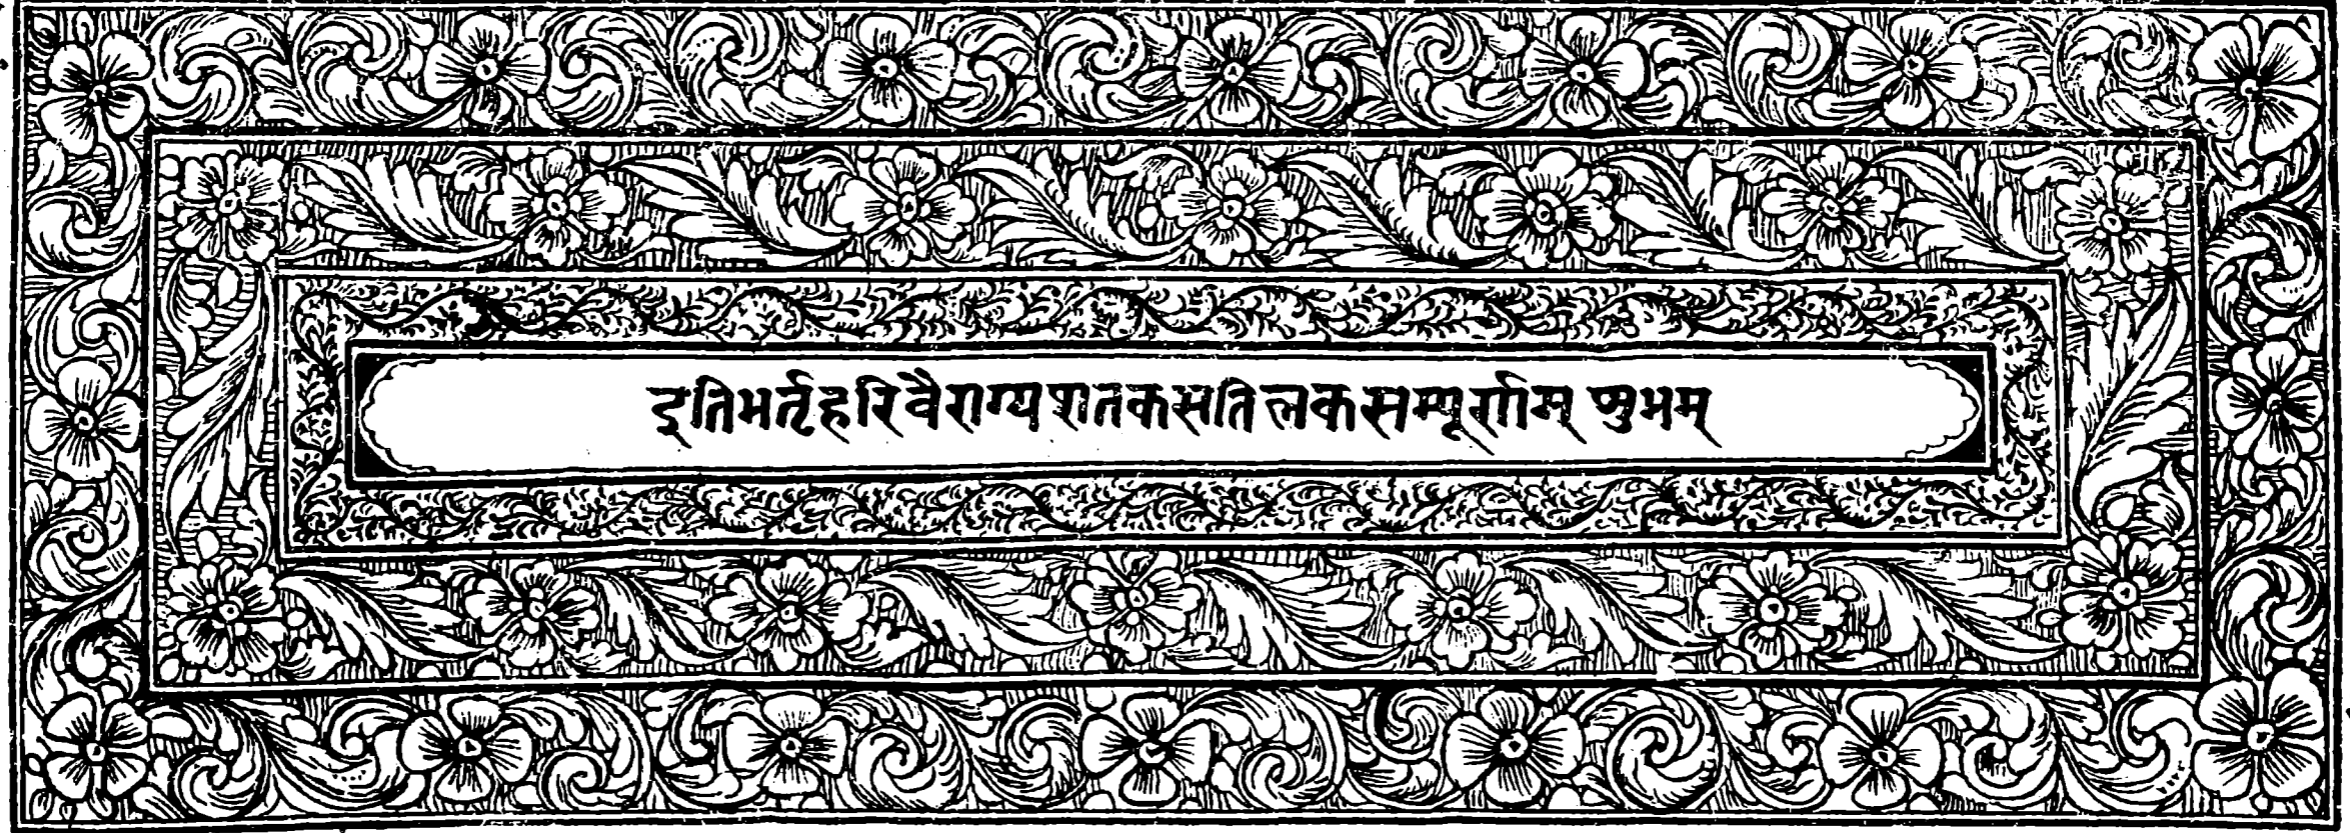 इतिभर्तृहरिवैराग्यशतकसतिलकसम्पूर्णम् शुभम्